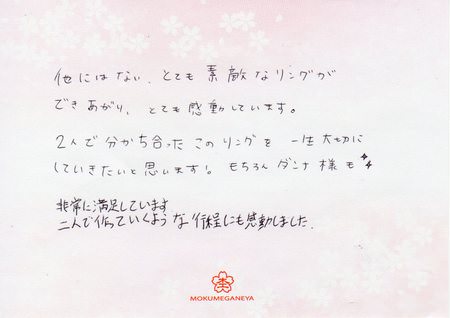 他にはない、とても素敵なリングが
できあがり、とても感動しています。
2人で分かち合ったこのリングを一生大切に
していきたいと思います! もちろんダンナ様も
非常に満足しています
二人で作っていくような行程にも感動しました.
杢
MOKUMEGANEYA